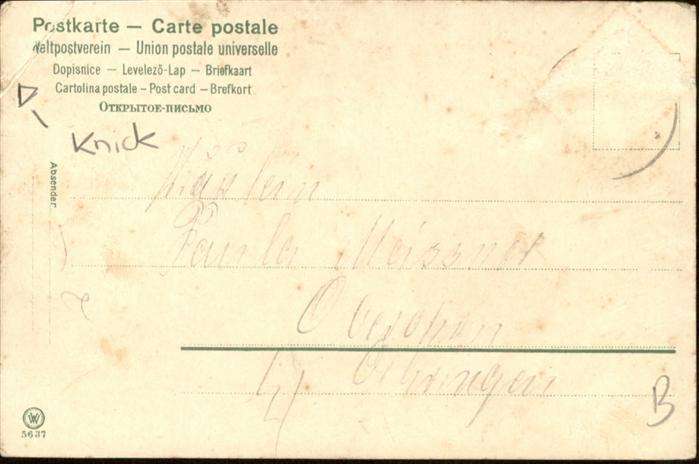 Postkarte — Carte postale
Weltpostverein — Union postale universelle
Dopisnice — Levelező-Lap — Briefkaart
Cartolina postale — Post card — Brefkort
Открытое-письмо
Knick
Absender
Fräulein
Paula Meissner
W
5637
B